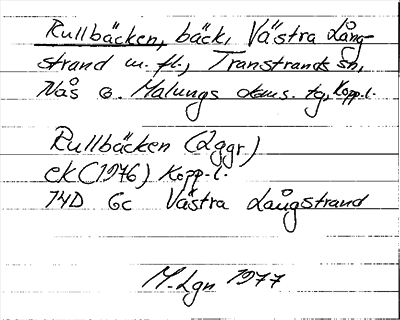 Rullbäcken, bäck, Västra Lång-
strand m. fl., Transtrands sn,
Nås o. Malungs doms. tg, Kopp.l.
Rullbäcken (2ggr)
ek (1976) Kopp.l.
14D 6c Västra Långstrand
M. Lgn 1977